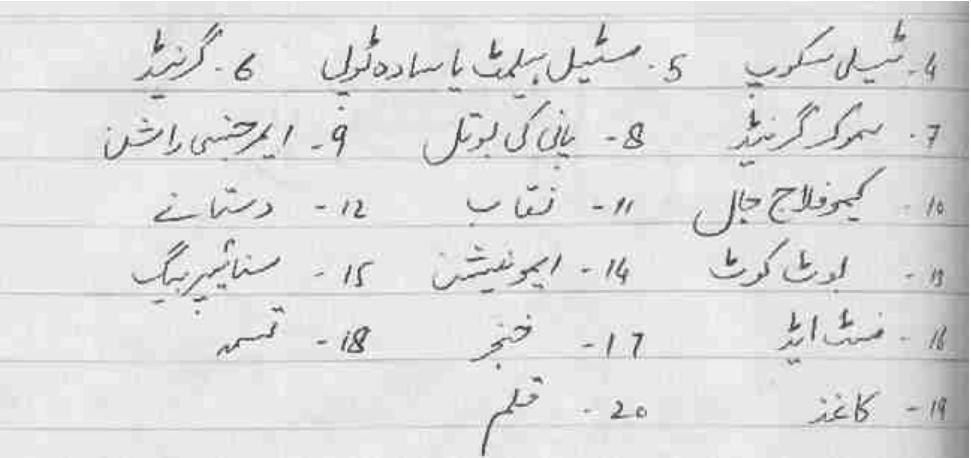 4۔ ٹیلی سکوپ 5۔ سٹیل ہیلمٹ یا سادہ ٹوپی 6۔ گرنیڈ
7۔ سموکر گرنیڈ 8۔ پانی کی بوتل 9۔ ایمرجنسی راشن
10۔ کیموفلاج جال 11۔ نقاب 12۔ دستانے
13۔ بوٹ کوٹ 14۔ ایمونیشن 15۔ سنائیپر بیگ
16۔ فسٹ ایڈ 17۔ خنجر 18۔ تسمہ
19۔ کاغذ 20۔ قلم